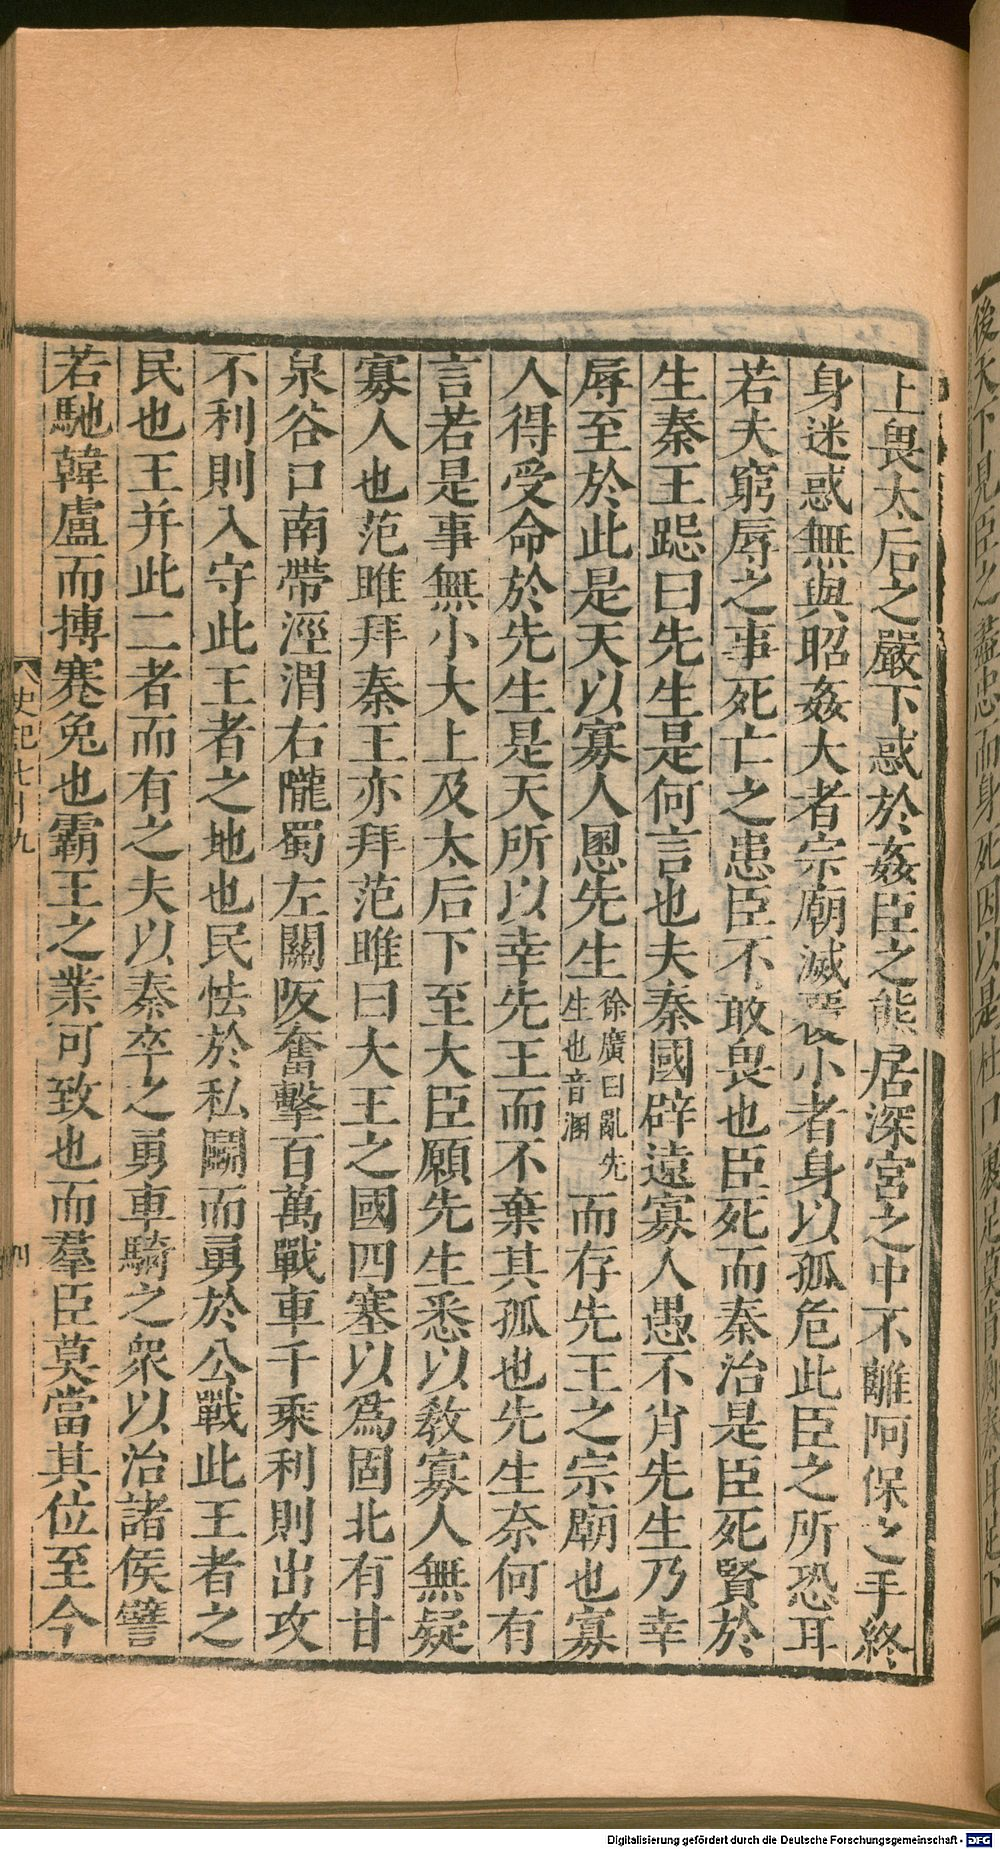 上畏太后之嚴下惑於姦臣之態居深宮之中不離阿保之手終
身迷惑無與昭姦大者宗廟滅覆小者身以孤危此臣之所恐耳
若夫窮辱之事死亡之患臣不敢畏也臣死而秦治是臣死賢於
生秦王跽曰先生是何言也夫秦國辟遠寡人愚不肖先生乃幸
辱至於此是天以寡人慁先生徐廣曰亂先生也音溷而存先王之宗廟也寡
人得受命於先生是天所以幸先王而不棄其孤也先生奈何有
言若是事無小大上及太后下至大臣願先生悉以敎寡人無疑
寡人也范雎拜秦王亦拜范雎曰大王之國四塞以爲固北有甘
泉谷口南帶涇渭右隴蜀左關阪奮擊百萬戰車千乘利則出攻
不利則入守此王者之地也民怯於私鬬而勇於公戰此王者之
民也王并此二者而有之夫以秦卒之勇車騎之衆以治諸侯譬
若馳韓盧而搏蹇兔也霸王之業可致也而羣臣莫當其位至今
史記七十九
四
Digitalisierung gefördert durch die Deutsche Forschungsgemeinschaft - DFG